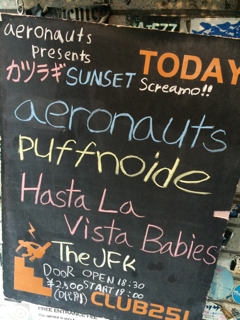 aeronauts
Presents
TODAY
カツラギ SUNSET Screamo!!
aeronauts
puffnoide
Hasta La
Vista Babies
The JFK
DOOR OPEN 18:30
¥2,500 START 19:00
(D代別)
CLUB251